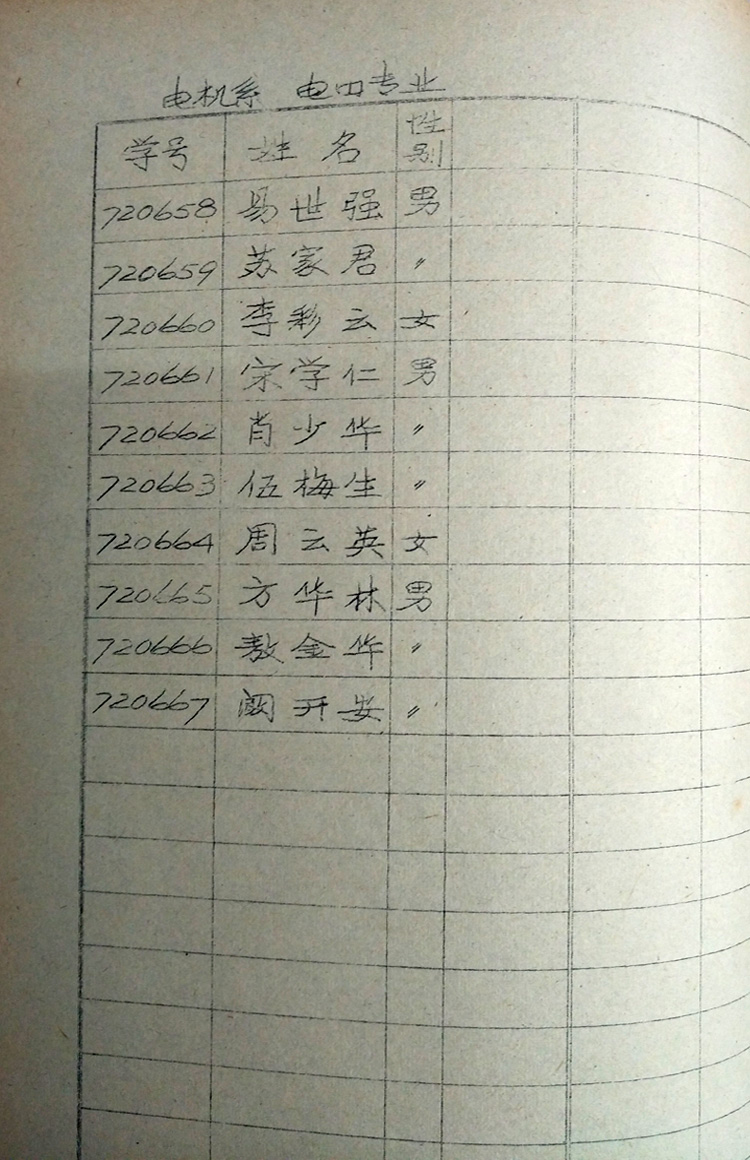 电机系 电四专业
学号 姓名 性别
720658 易世强 男
720659 苏家君 〃
720660 李彩云 女
720661 宋学仁 男
720662 肖少华 〃
720663 伍梅生 〃
720664 周云英 女
720665 方华林 男
720666 敖金华 〃
720667 阙开安 〃